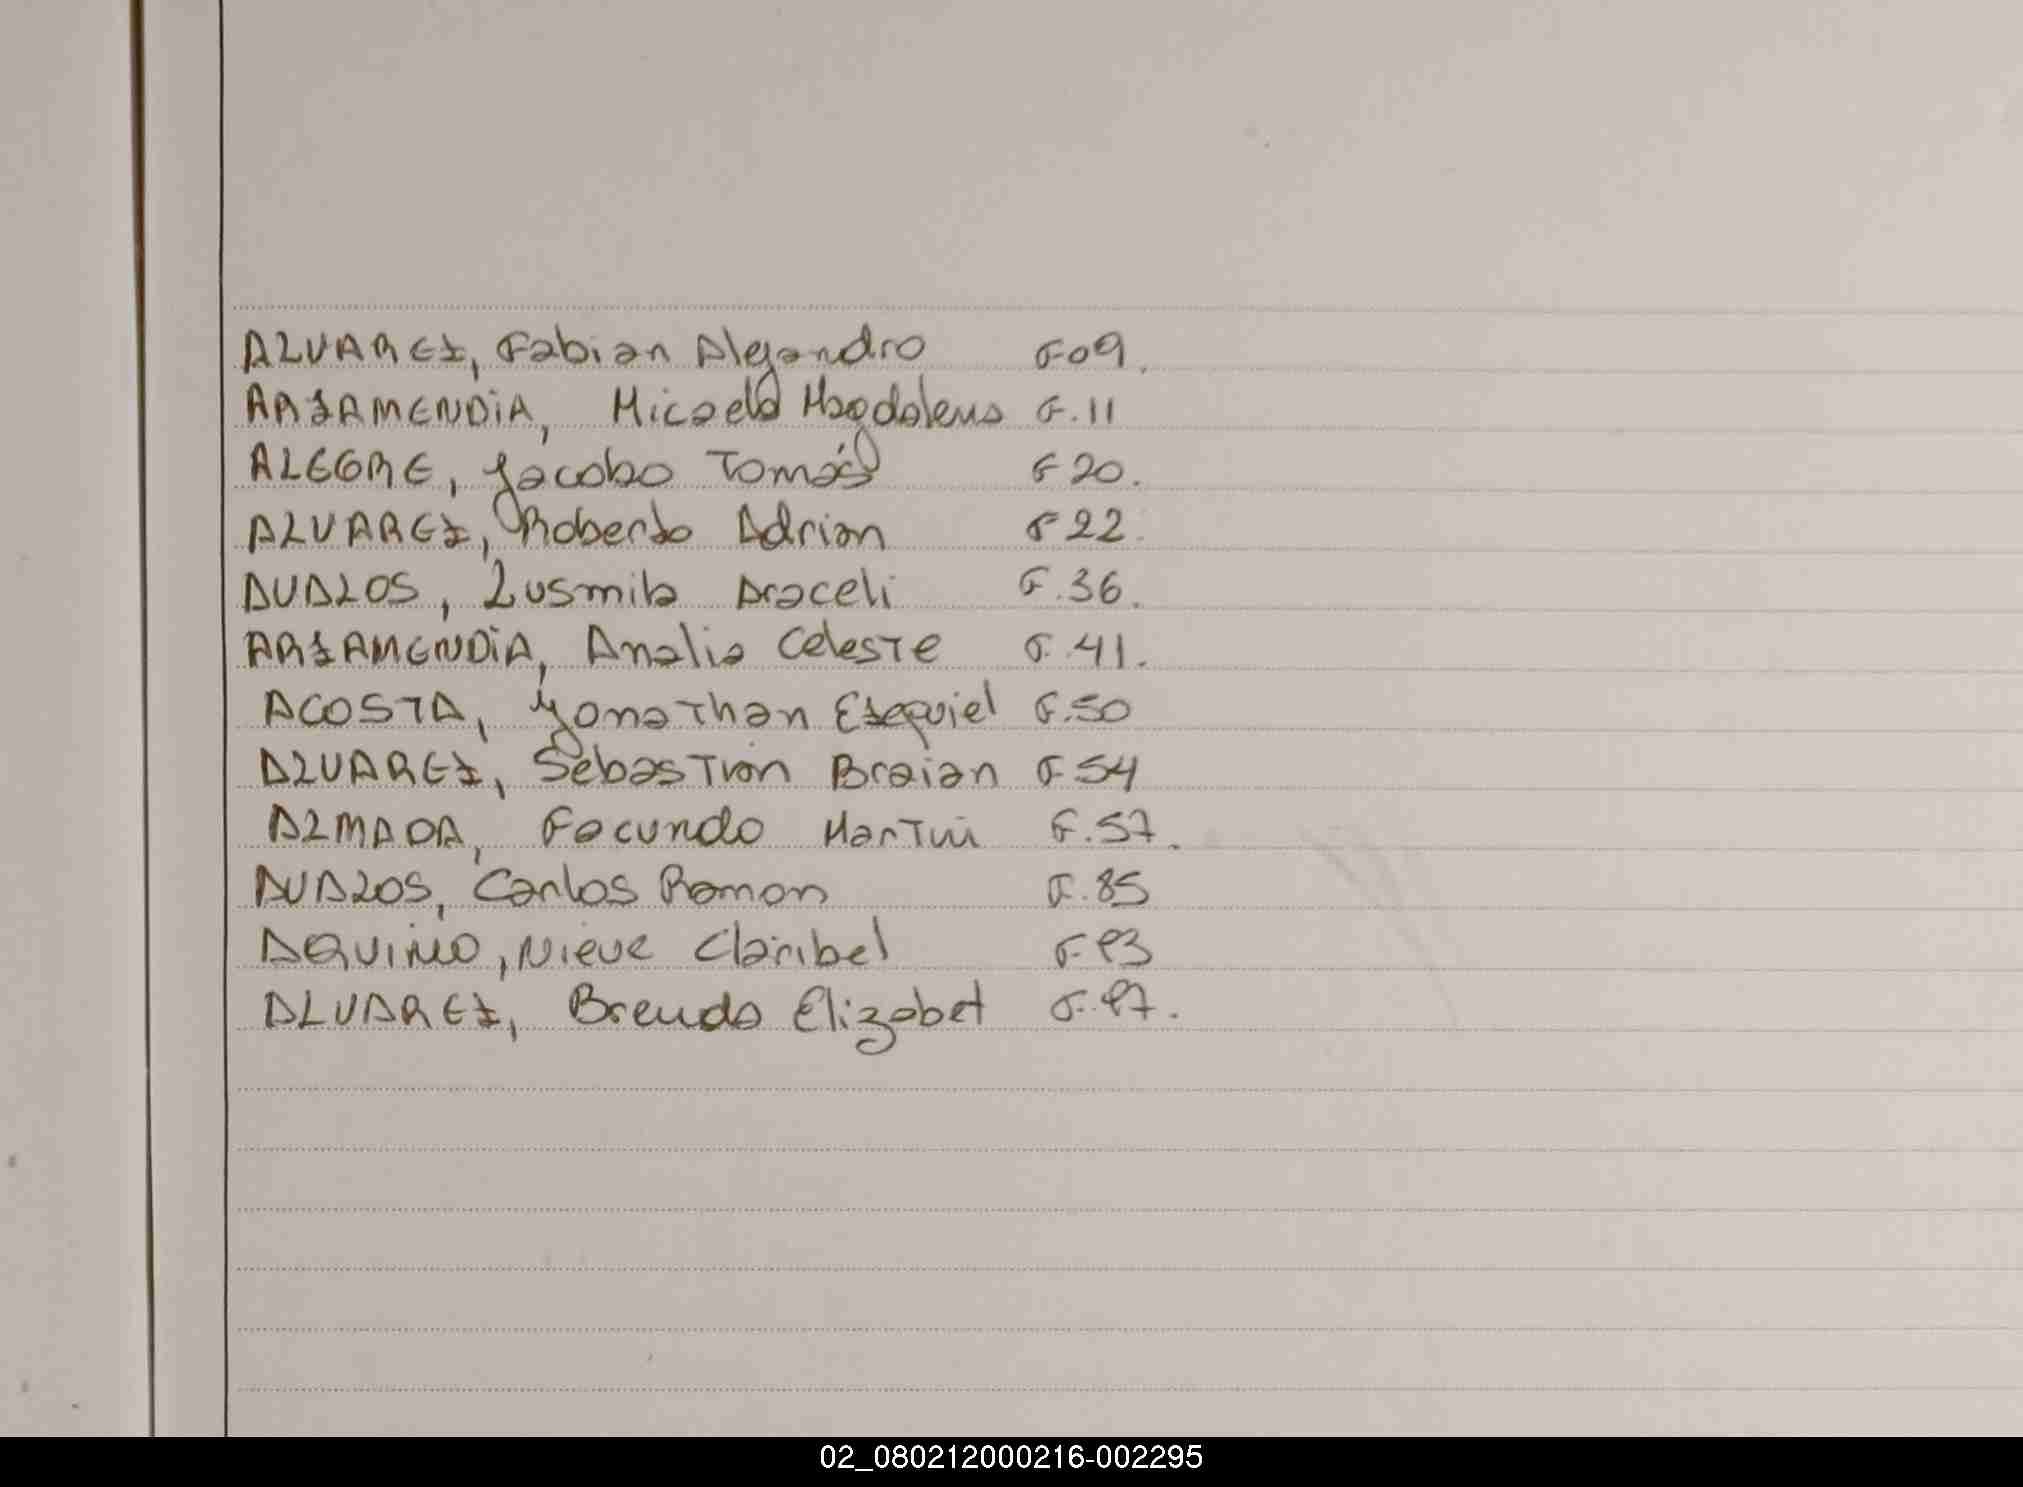 ALVAREZ, Fabian Alejandro F 09.
ARZAMENDIA, Micaela Magdalena F.11
ALEGRE, Jacobo Tomás F 20.
ALVAREZ, Roberto Adrian F 22.
AVALOS, Lusmila Araceli F.36.
ARZAMENDIA, Analia Celeste F.41.
ACOSTA, Yonathan Ezequiel F.50
ALVAREZ, Sebastian Braian F 54
ALMADA, Facundo Martin F.57.
AVALOS, Carlos Ramon F.85
AQUINO, Nieve Claribel F.93
ALVAREZ, Brenda Elizabet F.97.
02_080212000216-002295